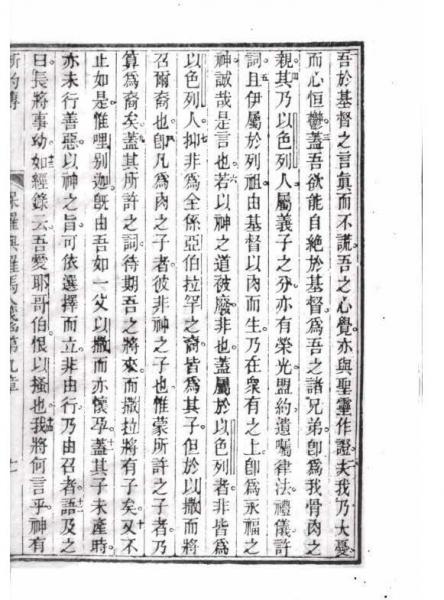 吾於基督之言眞而不謊。吾之心覺亦與聖靈作證。夫我乃大憂
而心恒鬱。蓋吾欲能自絶於基督爲吾之諸兄弟。卽爲我骨肉之
親。其乃以色列人屬義子之分。亦有榮光盟約遺囑律法禮儀許
詞。且伊屬於列祖。由基督以肉而生。乃在衆有之上。卽爲永福之
神。誠哉是言也。若以神之道被廢非也。蓋屬於以色列者。非皆爲
以色列人。抑非爲全係亞伯拉罕之裔。皆爲其子。但於以撒而將
召爾裔也。卽凡爲肉之子者。彼非神之子也。惟蒙所許之子者。乃
算爲裔矣。蓋其所許之詞。待期吾之將來。而撒拉將有子矣。又不
止如是。惟哩别迦旣由吾如一父以撒而亦懷孕。蓋其子未產時。
亦未行善惡。以神之旨可依選擇而立。非由行。乃由召者。語及之
曰。長將事幼。如經錄云。吾愛耶哥伯恨以掃也。我將何言乎。神有
新約傳 保羅與羅馬人書第九章 七